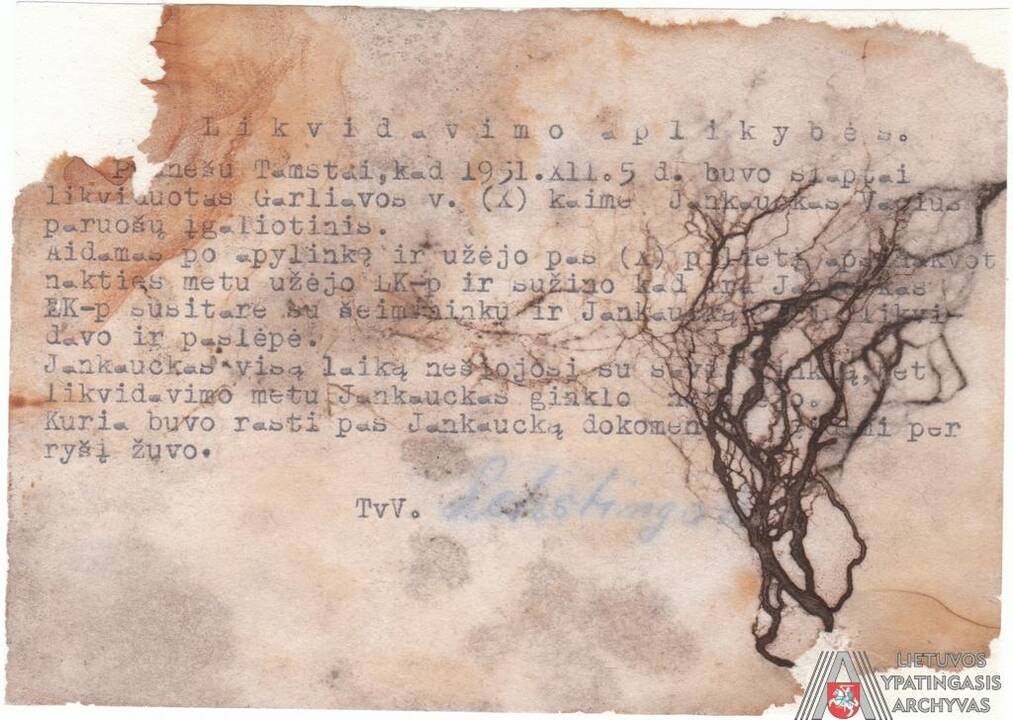 Likvidavimo aplikybės.
Pranešu Tamstai,kad 1951.XII.5 d. buvo slaptai
likviduotas Garliavos v. (X) kaime Jankauckas Vacius
paruošų įgaliotinis.
Aidamas po apylinkę ir užėjo pas (X) pilietį
nakties metu užėjo LK-p ir sužino kad yra Jankauckas
LK-p susitarę su šeimininku ir Jankaucką likvi-
davo ir paslėpė.
Jankauckas visą laiką nešiojosi su savim ginklą, bet
likvidavimo metu Jankauckas ginklo neturėjo.
Kuria buvo rasti pas Jankaucką per
ryšį žuvo.
TvV.
LIETUVOS
YPATINGASIS
ARCHYVAS